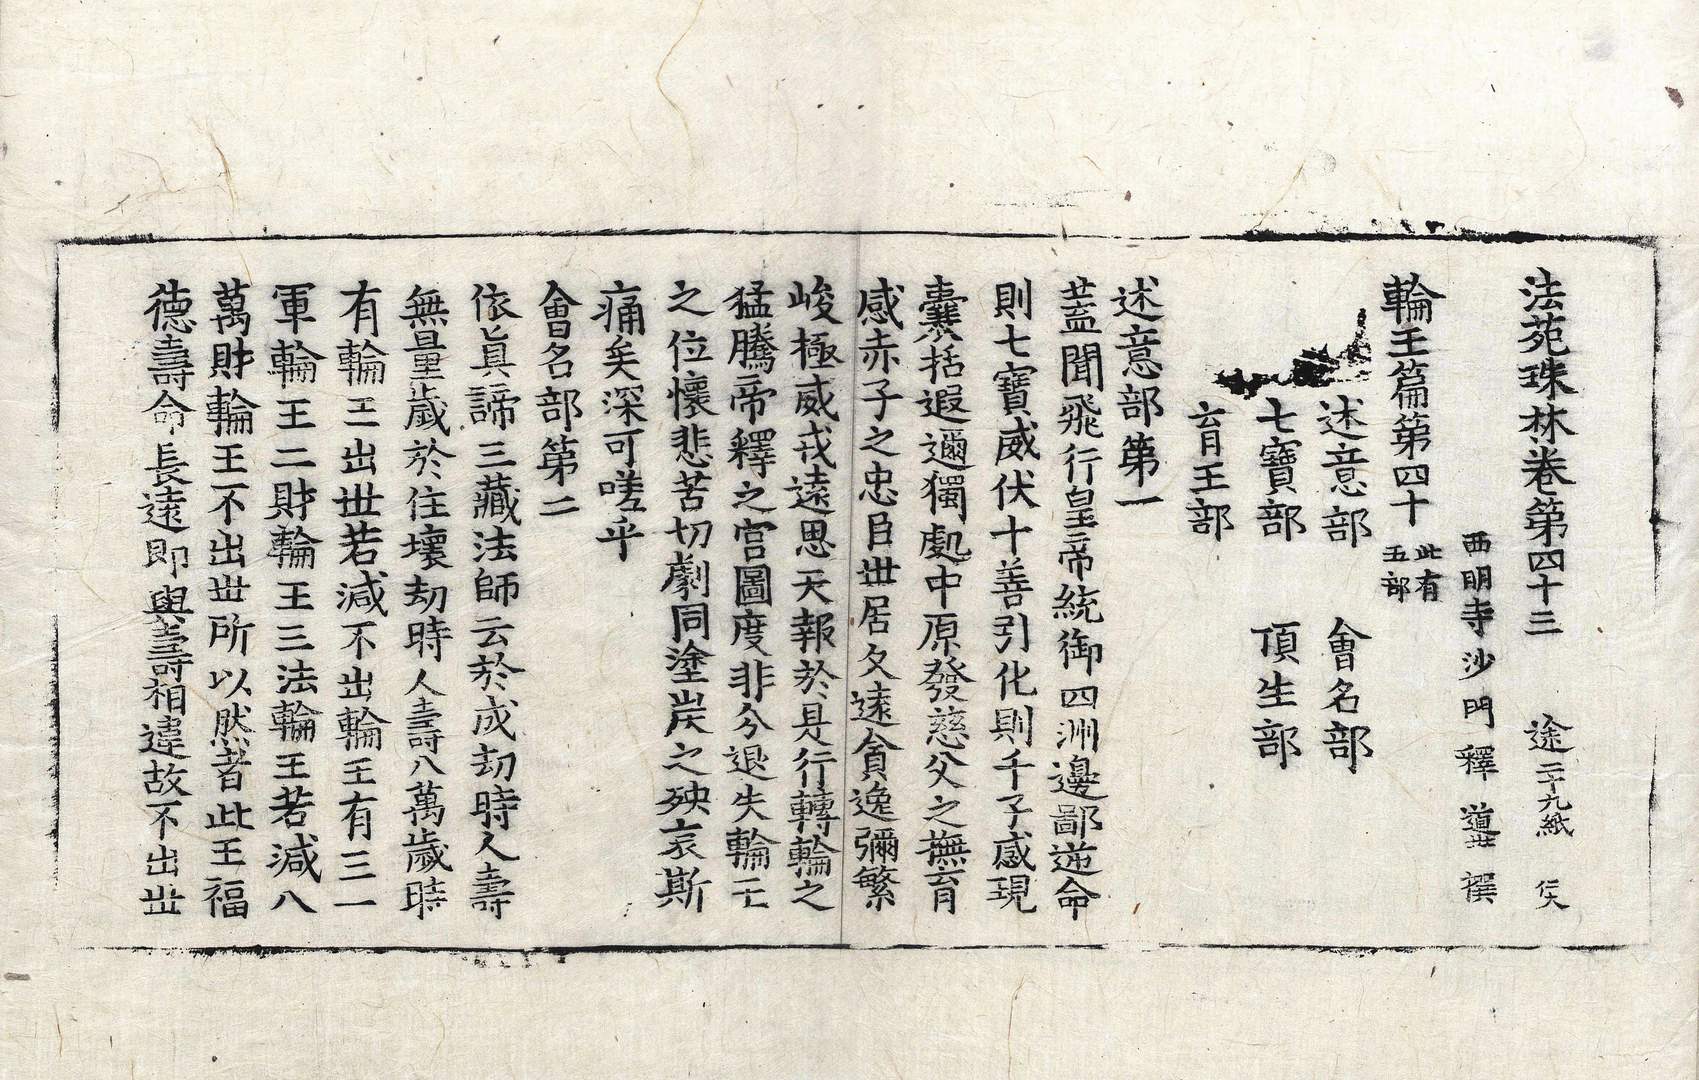 法苑珠林卷第四十三　途　二十九紙　伕
西明寺沙門釋道世撰
輪王篇第四十 此有五部
述意部　會名部
七寶部　頂生部
育王部
述意部第一
蓋聞飛行皇帝統御四洲邊鄙逆命
則七寶威伏十善引化則千子感現
囊括遐邇獨處中原發慈父之撫育
感赤子之忠臣世居久遠貪逸彌繁
峻極威戎遠思天報於是行轉輪之
猛騰帝釋之宮圖度非分退失輪王
之位懷悲苦切劇同塗炭之殃哀斯
痛矣深可嗟乎
會名部第二
依眞諦三藏法師云於成劫時人壽
無量歲於住壞劫時人壽八萬歲時
有輪王出世若減不出輪王有三一
軍輪王二財輪王三法輪王若減八
萬財輪王不出世所以然者此王福
德壽命長遠即與壽相違故不出世